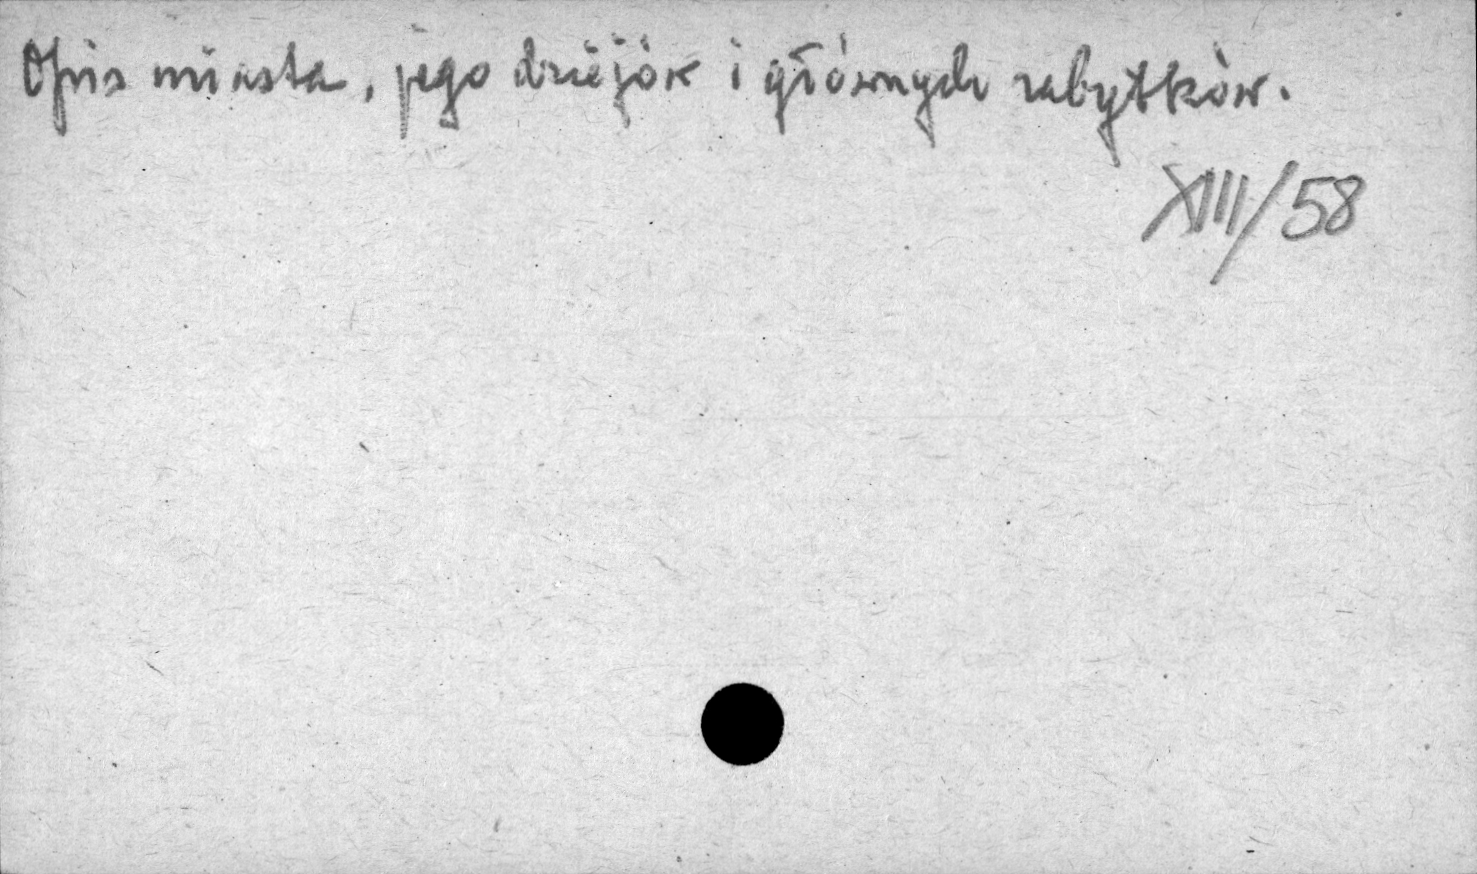 Opis miasta, jego dziejów i głównych zabytków.
XIII/58